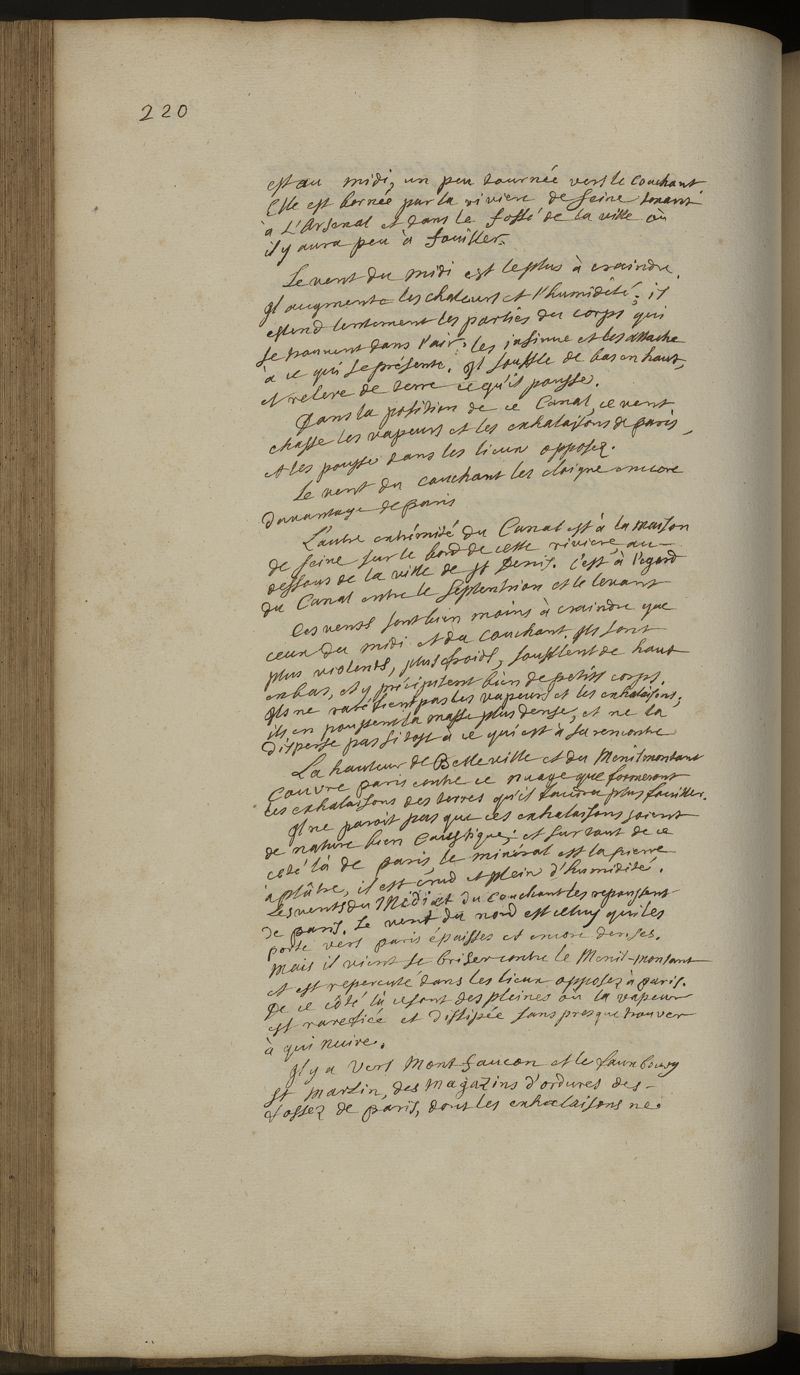 220
est au midi, un peu tournée vers le Couchant.
Elle est bornée par la riviere de seine tenant
à L'Arsenal et dans le fossé de la ville où
il y aura peu à fouiller.
Le vent du midi est le plus à craindre.
Il augmente les chaleurs et l'humidité; il
estend lentement les parties du corps qui
se trouvent dans l'air: les insinue et les attache
à ce qui se présente. Il souffle de bas en haut,
et releve de terre ce qu'il pousse.
Dans la position de ce Canal, ce vent
chasse les vapeurs et les exhalaisons de paris,
et les pousse dans les lieux opposez.
Le vent du couchant les eloigne encore
davantage de paris
L'autre extrémité du Canal est à la maison
de seine sur le bord de cette riviere au-
dessous de la ville de st Denis. C'est à l'egard
du Canal entre le septentrion et le levant
Ces vents sont bien moins à craindre que
ceux du midi et du couchant. Ils sont
plus violents, plus froids, soufflent de haut
en bas, et y précipitent bien de petits corps.
Ils ne rarefient pas les vapeurs et les exhalaisons;
ils en poussent la masse plus dense, et ne la
disperse pas sitost à ce qui est à sa rencontre
La hauteur de Belleville et du Menilmontant
couvre paris contre ce nuage que formeront
les exhalaisons des terres qu'il faudra plus fouiller.
Il ne paroit pas que ces exhalaisons soient
de nature bien Caustique: et sur tout de ce
côté là de paris le minéral est la pierre
à plâtre, il est crud et plein d'humidité.
Les vents du Midi et du Couchant les repoussent
de paris. Le vent du nord est celuy qui les
porte vers paris épaisses et encore denses.
mais il vient se briser contre le Menil-montant
et est repercuté dans les lieux opposez à paris.
De ce côté là ce sont des pleines où la vapeur
est rarefiée et dissipée sans presque trouver
à qui nuire.
Il y a vers Montfaucon et le faux bourg
st Martin, des magazins d'ordures des-
fossez de paris, dont les exhalaisons ne